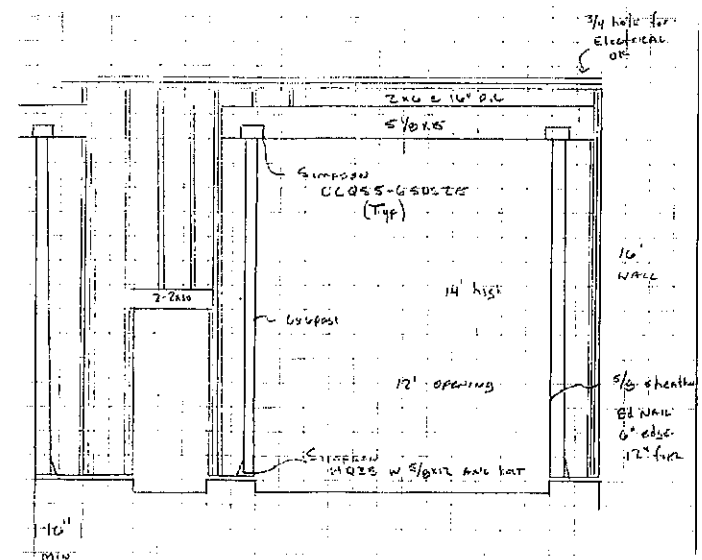 3/4 hole for
Electrical
OK
2x6 @ 16" O.C
5 1/8 x 15
SIMPSON
(Typ)
16'
WALL
14' high
2-2x10
6x6 post
12' OPENING
5/8 sheath
8d NAIL
6" edge
SIMPSON
W 5/8x12 ANC BOLT
MIN